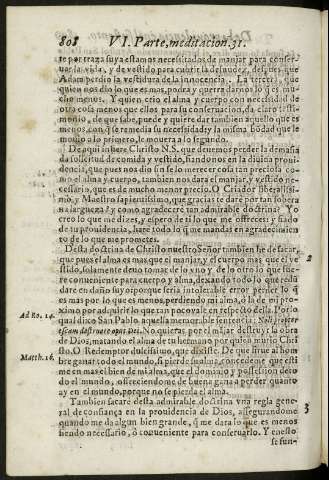 808 VI. Parte, meditacion. 31.
te por traza suya estamos necessitados de manjar para conser-
uar la vida, y de vestido para cubrir la desnudez, despues que
Adam perdio la vestidura de la innocencia. La tercera, que
quien nos dio lo que es mas, podra y querra darnos lo q̃ es mu-
cho menos. Y quien crio el alma y cuerpo con necessidad de
otra cosa menos que ellos para su conseruacion, da claro testi-
monio, de que sabe, puede y quiere dar tambien aquello que es
menos, con q̃ se remedia su necessidad: y la misma bondad que le
mouio a lo primero, le mouera a lo segundo.
De aqui infiere Christo N. S. que deuemos perder la demasia
da solicitud de comida y vestido, fiandonos en la diuina proui-
dencia, que pues nos dio sin se lo merecer cosa tan preciosa co-
mo el alma y cuerpo, tambien nos dara el manjar, y vestido ne-
cessario, que es de mucho menor precio. O Criador liberalissi-
mo, y Maestro sapientissimo, que gracias te dare por tan sobera
na largueza? y como agradecere tan admirable doctrina? Yo
creo lo que me dizes, y espero de ti lo que me offreces: y fiado
de tu prouidencia, hare todo lo q̃ me mandas en agradecimien-
to de lo que me prometes.
Desta doctrina de Christo nuestro Señor tambien he de sacar,
que pues el alma es mas que el manjar, y el cuerpo mas que el ve
stido, solamente deuo tomar de lo vno y de lo otro lo que fue-
re conueniente para cuerpo y alma, dexando todo lo que redũ
dare en daño suyo: porque seria intolerable error perder lo q̃
es mas por lo que es menos, perdiendo mi alma, o la de mi pro-
ximo por adquirir lo que tan poco vale en respecto della. Por lo
qual dixo San Pablo aquella memorable sentencia: Noli propter
escam destruere opus Dei. No quieras por el májar destruyr la obra
de Dios, matando el alma de tu hermano por quien murio Chri
sto. O Redemptor dulcissimo, que dixiste, De que sirue al hom
bre ganar todo el mundo, si pierde su alma: concedeme que esti
me en mas el bien de mi alma, que el dominio y possession de to
do el mundo, offreciendome de buena gana a perder quanto
ay en el mundo, porque no se pierda el alma.
Tambien sacare desta admirable doctrina vna regla gene-
ral de confiança en la prouidencia de Dios, assegurandome
quando me da algun bien grande, q̃ me dara lo que es menos
siendo necessario, o conueniente para conseruarlo. Y en esto
se fun-
Ad Ro. 14.
Matth. 16.
2
3